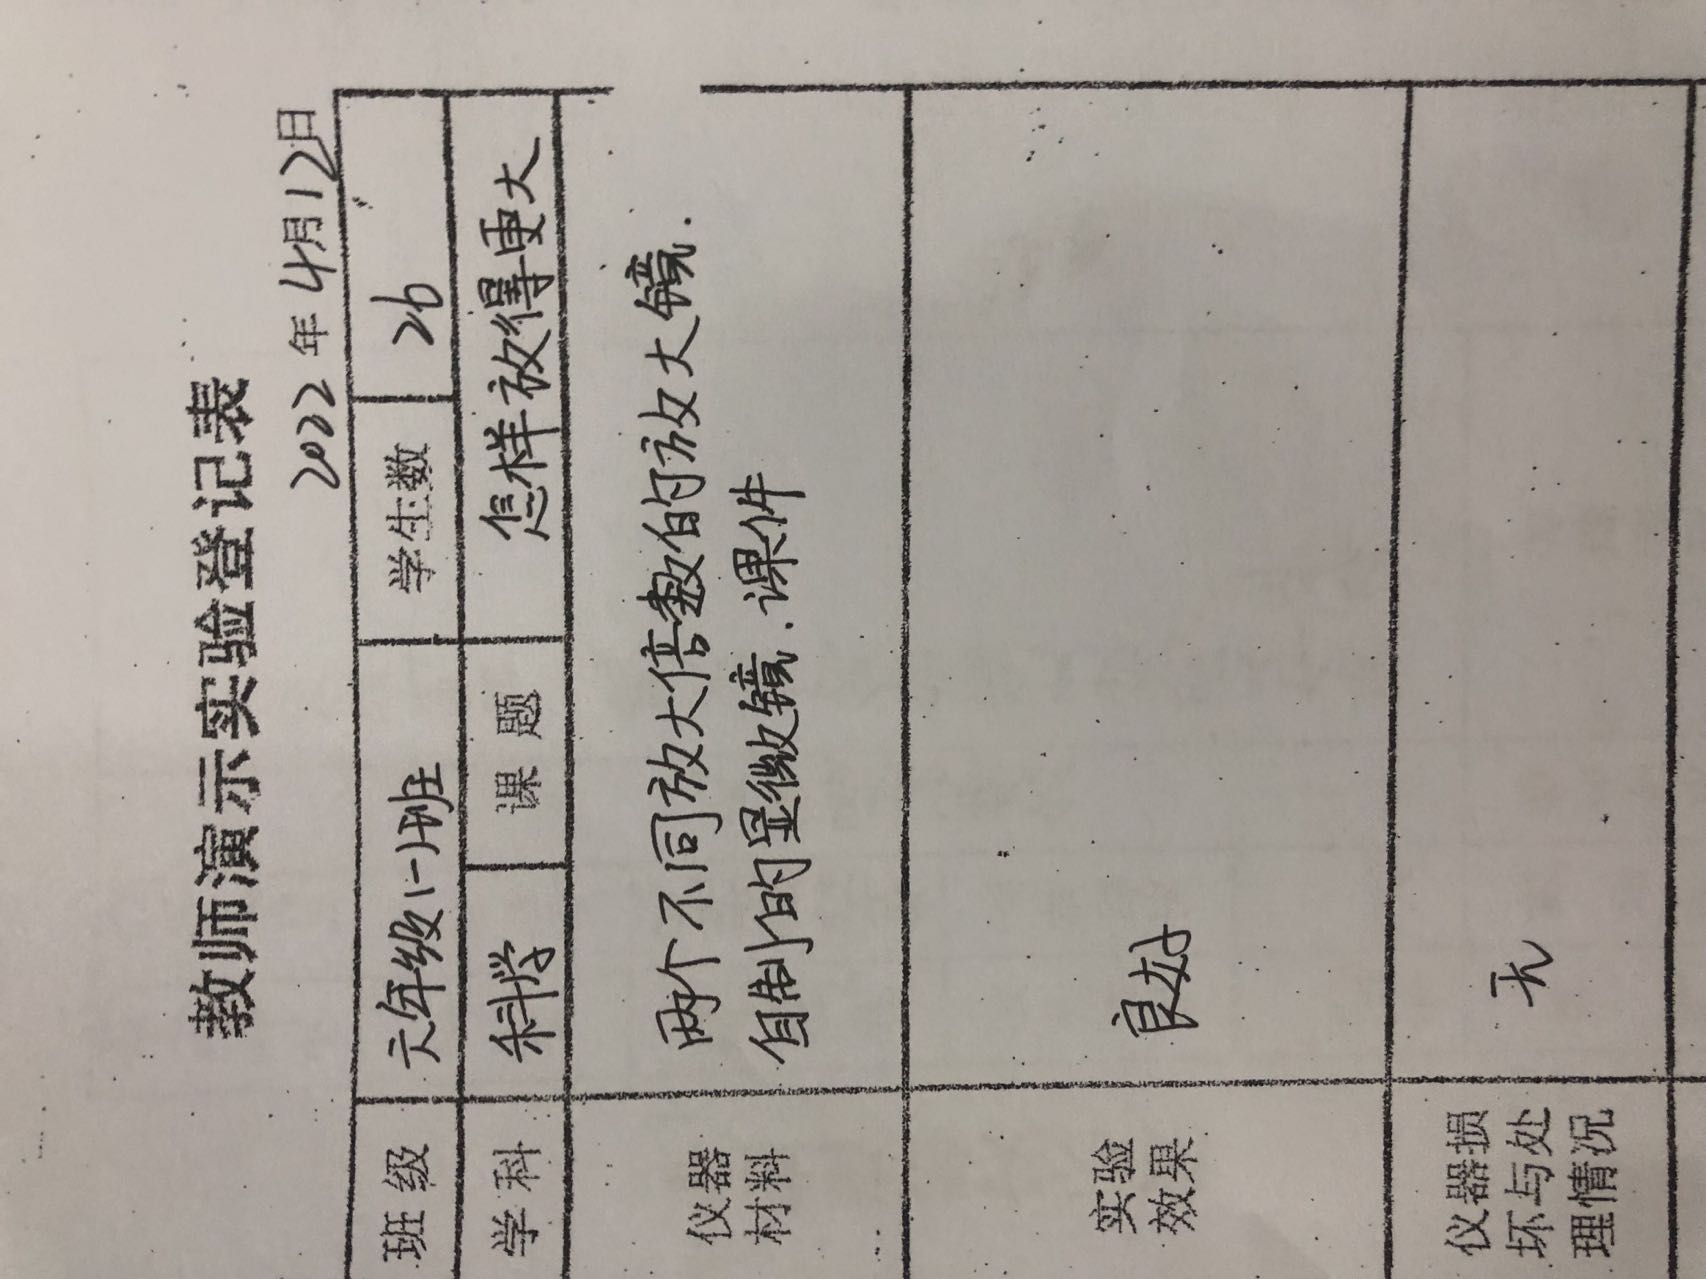 教师演示实验登记表
2022年4月12日
班级 六年级(一)班 学生数 26
学科 科学 课题 怎样放得更大
仪器 两个不同放大倍数的放大镜.
材料 自制的显微镜.课件
实验
效果 良好
仪器损
坏与处 无
理情况